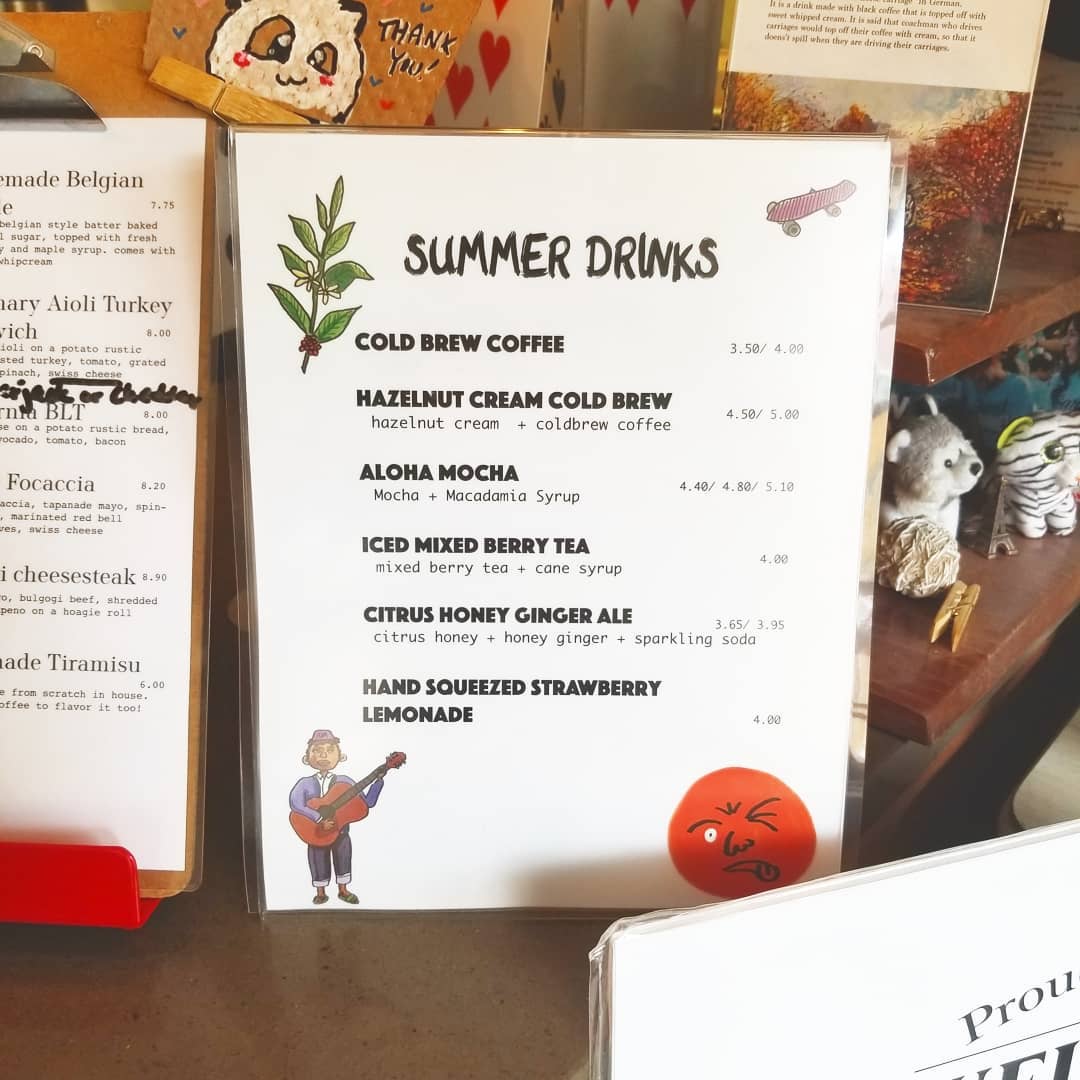 THANK
YOU!
carriage" in German.
It is a drink made with black coffee that is topped off with
sweet whipped cream. It is said that coachman who drives
carriages would top off their coffee with cream, so that it
doens't spill when they are driving their carriages.
emade Belgian
le
7.75
belgian style batter baked
l sugar, topped with fresh
y and maple syrup. comes with
whipcream
nary Aioli Turkey
wich
8.00
ioli on a potato rustic
sted turkey, tomato, grated
pinach, swiss cheese
or Cheddar
rnia BLT
8.00
se on a potato rustic bread,
vocado, tomato, bacon
Focaccia
8.20
accia, tapanade mayo, spin-
, marinated red bell
ves, swiss cheese
i cheesesteak 8.90
o, bulgogi beef, shredded
peno on a hoagie roll
made Tiramisu
6.00
e from scratch in house.
offee to flavor it too!
SUMMER DRINKS
COLD BREW COFFEE
3.50/ 4.00
HAZELNUT CREAM COLD BREW
4.50/ 5.00
hazelnut cream + coldbrew coffee
ALOHA MOCHA
4.40/ 4.80/ 5.10
Mocha + Macadamia Syrup
ICED MIXED BERRY TEA
4.00
mixed berry tea + cane syrup
CITRUS HONEY GINGER ALE
3.65/ 3.95
citrus honey + honey ginger + sparkling soda
HAND SQUEEZED STRAWBERRY
LEMONADE
4.00
Prou